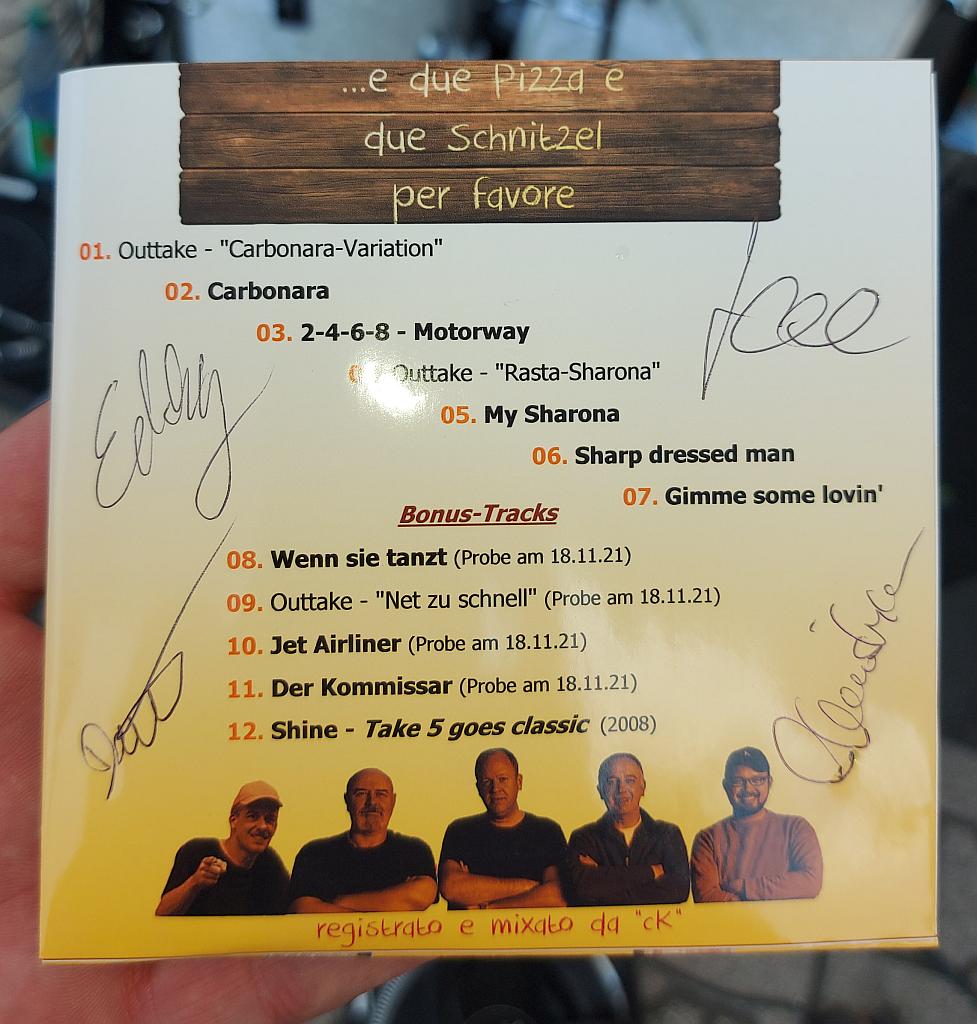 ...e due Pizza e
due Schnitzel
per favore
01. Outtake - "Carbonara-Variation"
02. Carbonara
03. 2-4-6-8 - Motorway
Outtake - "Rasta-Sharona"
05. My Sharona
06. Sharp dressed man
07. Gimme some lovin'
Eddy
Bonus-Tracks
08. Wenn sie tanzt (Probe am 18.11.21)
09. Outtake - "Net zu schnell" (Probe am 18.11.21)
10. Jet Airliner (Probe am 18.11.21)
11. Der Kommissar (Probe am 18.11.21)
12. Shine - Take 5 goes classic (2008)
registrato e mixato da "cK"